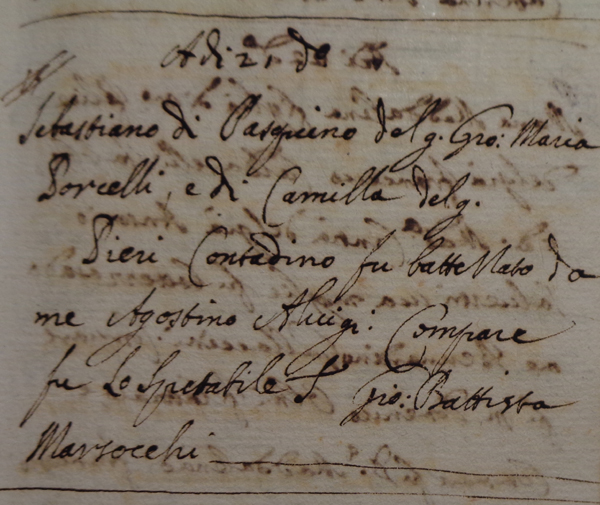 Adi 21 do
Sebastiano di Pasquino del q. Gio: Maria
Porcelli, e di Camilla del q.
Pieri Contadino fu battezzato da
me Agostino Aluigi. Compare
fu lo Spetabile Sr Gio: Battista
Marsocchi